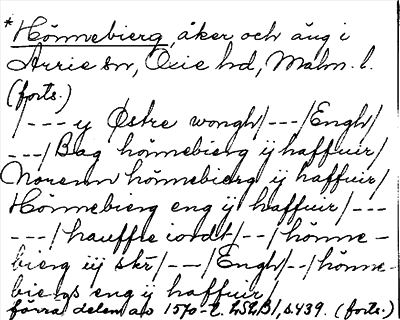 *Hönnebierg, åker och äng i
Arrie sn, Oxie hd, Malm. l.
(forts.)
/--- ij Østre wongh/---/Engh/
---/Bag hönnebierg ij haffuir/
Norenn hönnebierg ij haffuir/
Hönnebierg eng ij haffuir/---
---/hauffre iordt/--/hönne-
bierg iij skr/---/Engh/--/hönne-
biergs eng ij haffuir/
förra delen av 1570-t. LSLB/, s. 439. (forts.)